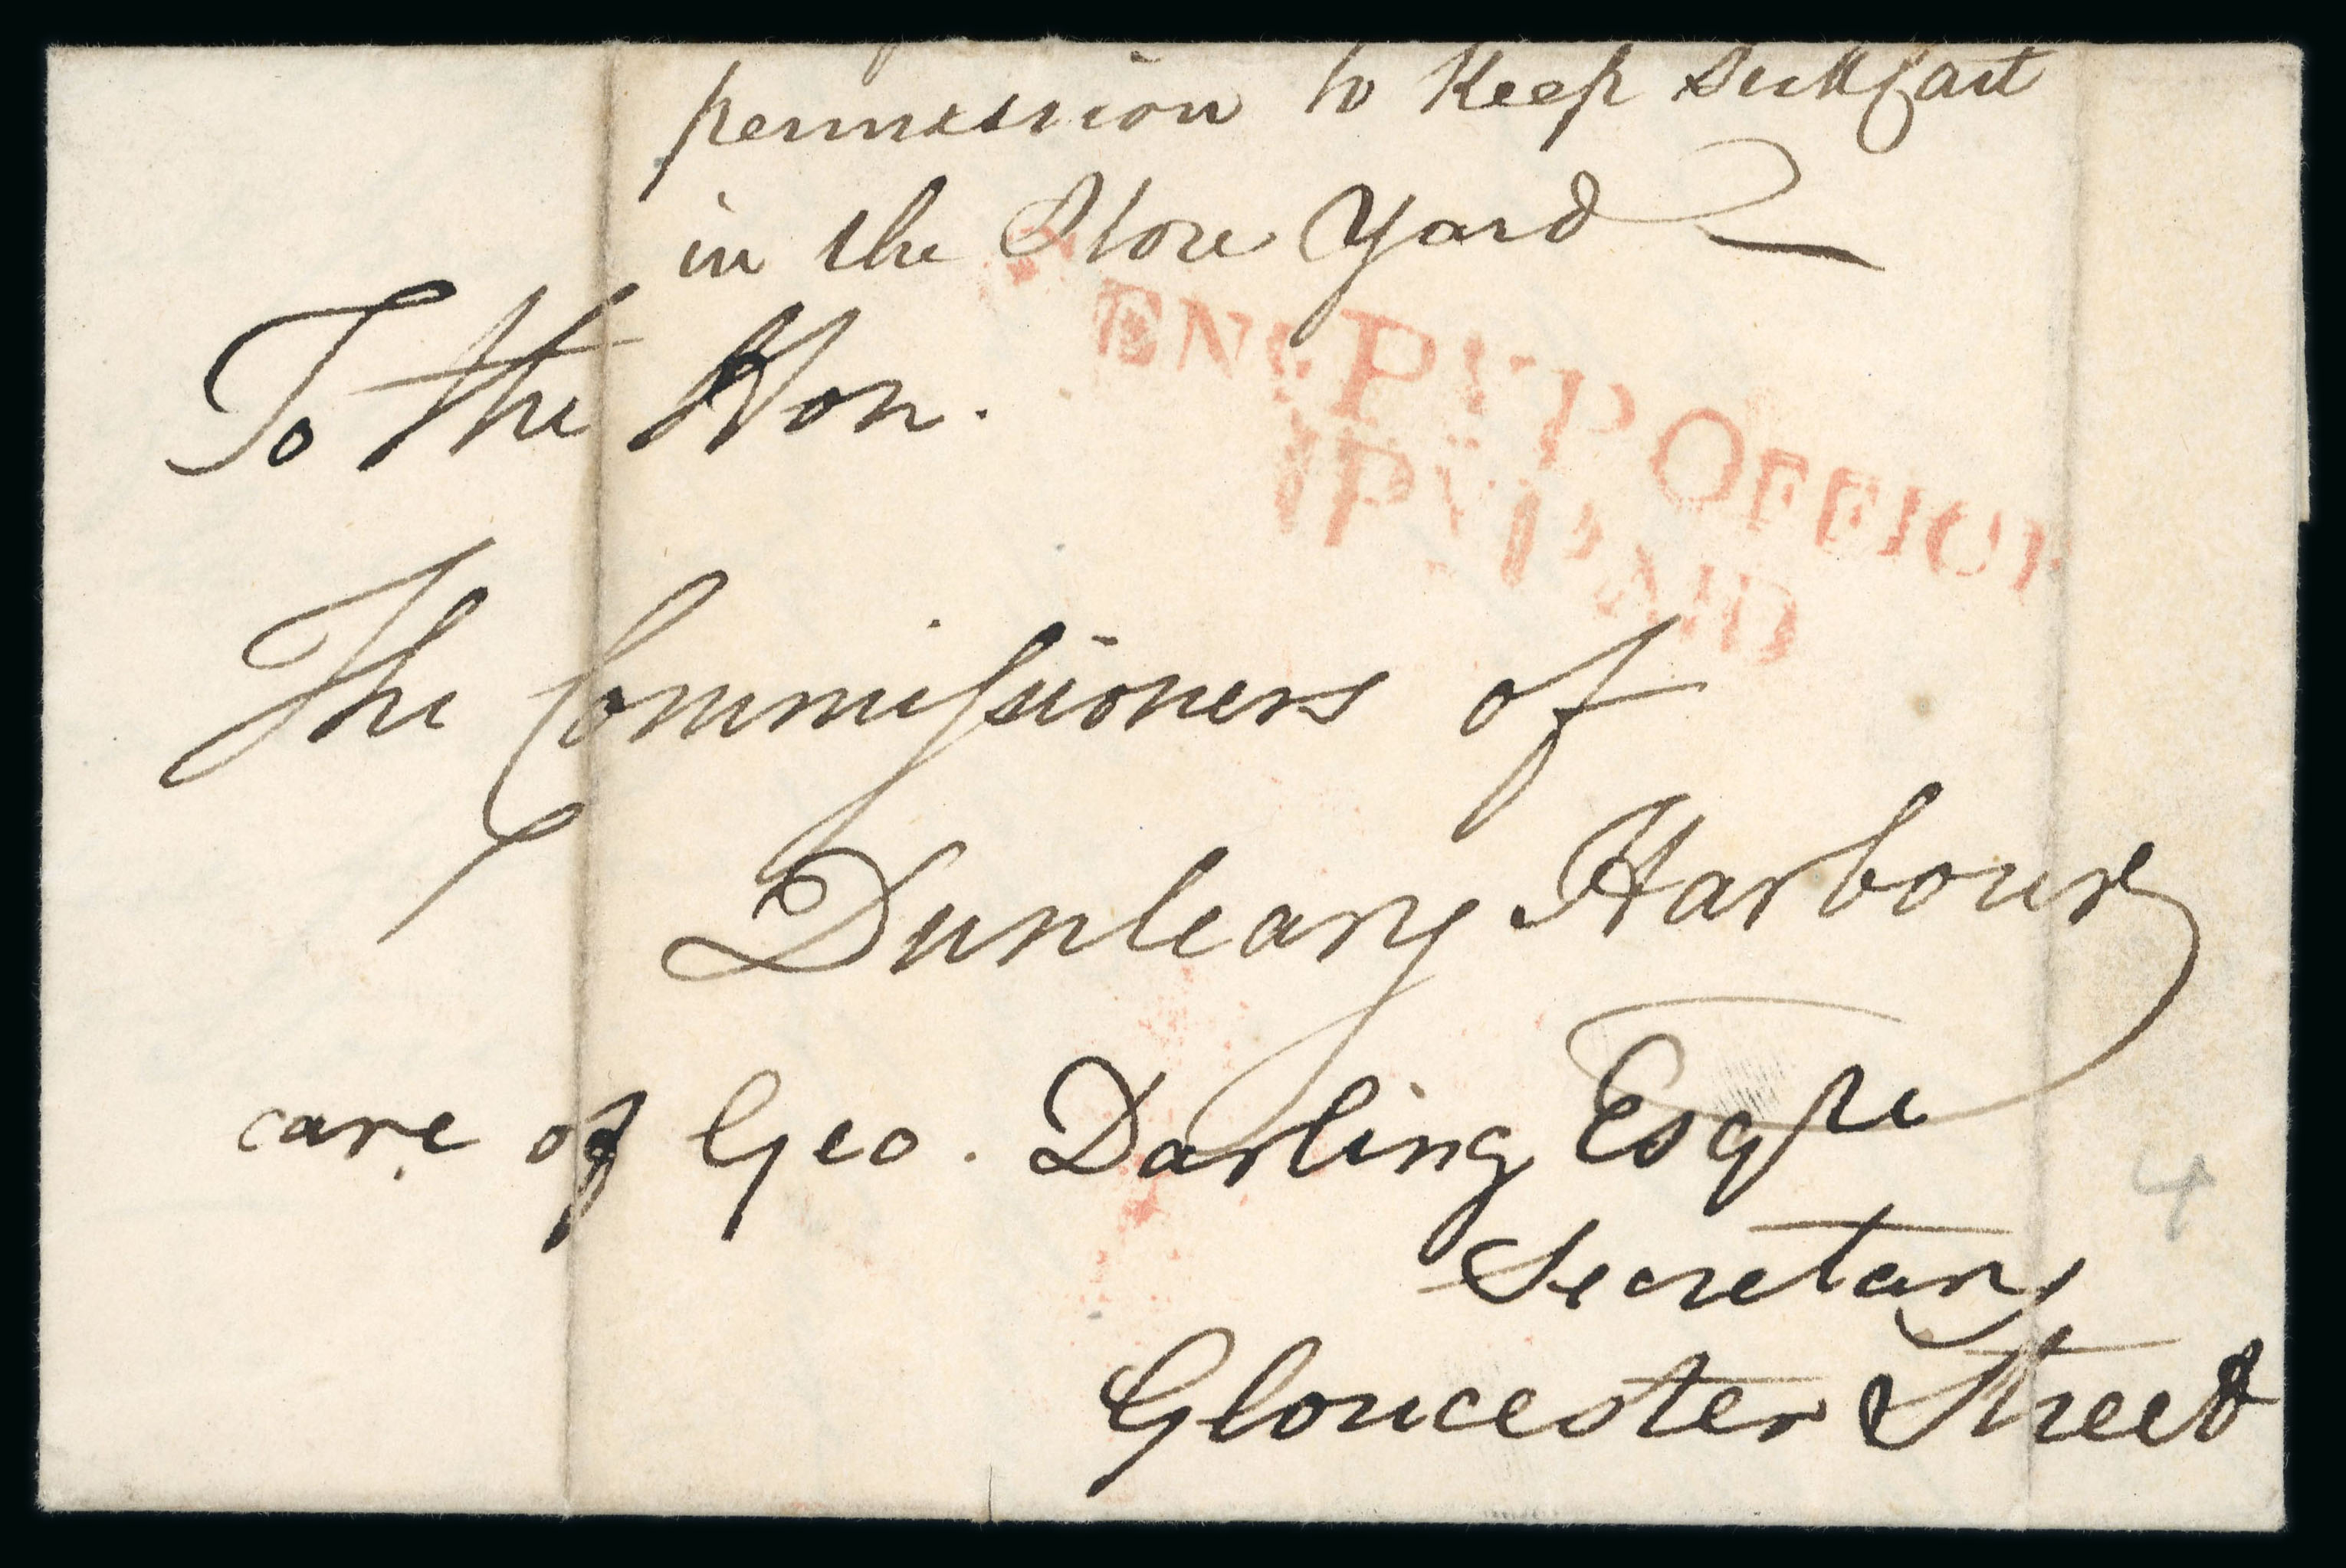 permission to Keep
in the Store Yard
To the Hon.
PENY P OFFICE
P PAID
The Commissioners of
Dunleary Harbour
care of Geo. Darling Esqre
Secretary
Gloucester Street
4